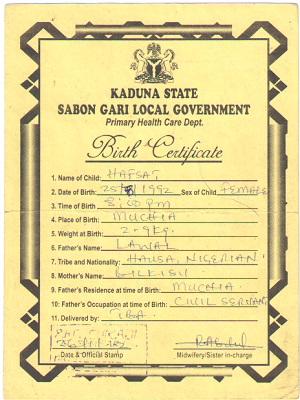 KADUNA STATE
SABON GARI LOCAL GOVERNMENT
Primary Health Care Dept.
Birth Certificate
1. Name of Child: HAFSAT
2. Date of Birth: 25/8/1992 Sex of Child FEMALE
3. Time of Birth 8:00 pm
4. Place of Birth: MUCHIA
5. Weight at Birth: 2.9kg.
6. Father's Name: LAWAL
7. Tribe and Nationality: HAUSA, NIGERIAN
8. Mother's Name: BILKISU
9. Father's Residence at time of Birth: MUCHIA
10: Father's Occupation at time of Birth: CIVIL SERVANT
11. Delivered by: TBA
Date & Official Stamp Midwifery/Sister in-charge